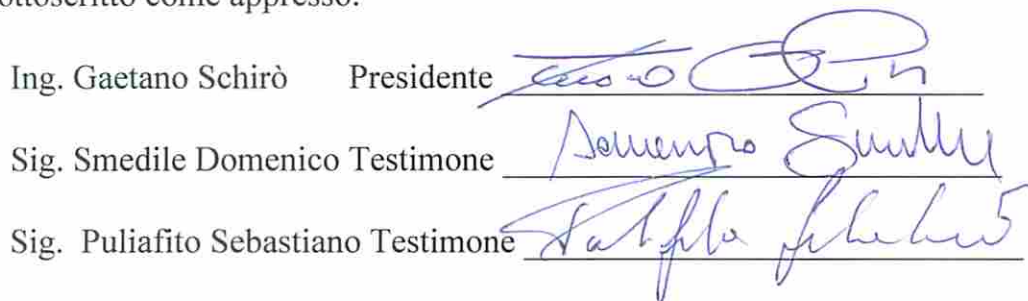 ottoscritto come appresso.
Ing. Gaetano Schirò Presidente
Sig. Smedile Domenico Testimone Domenico Smedile
Sig. Puliafito Sebastiano Testimone